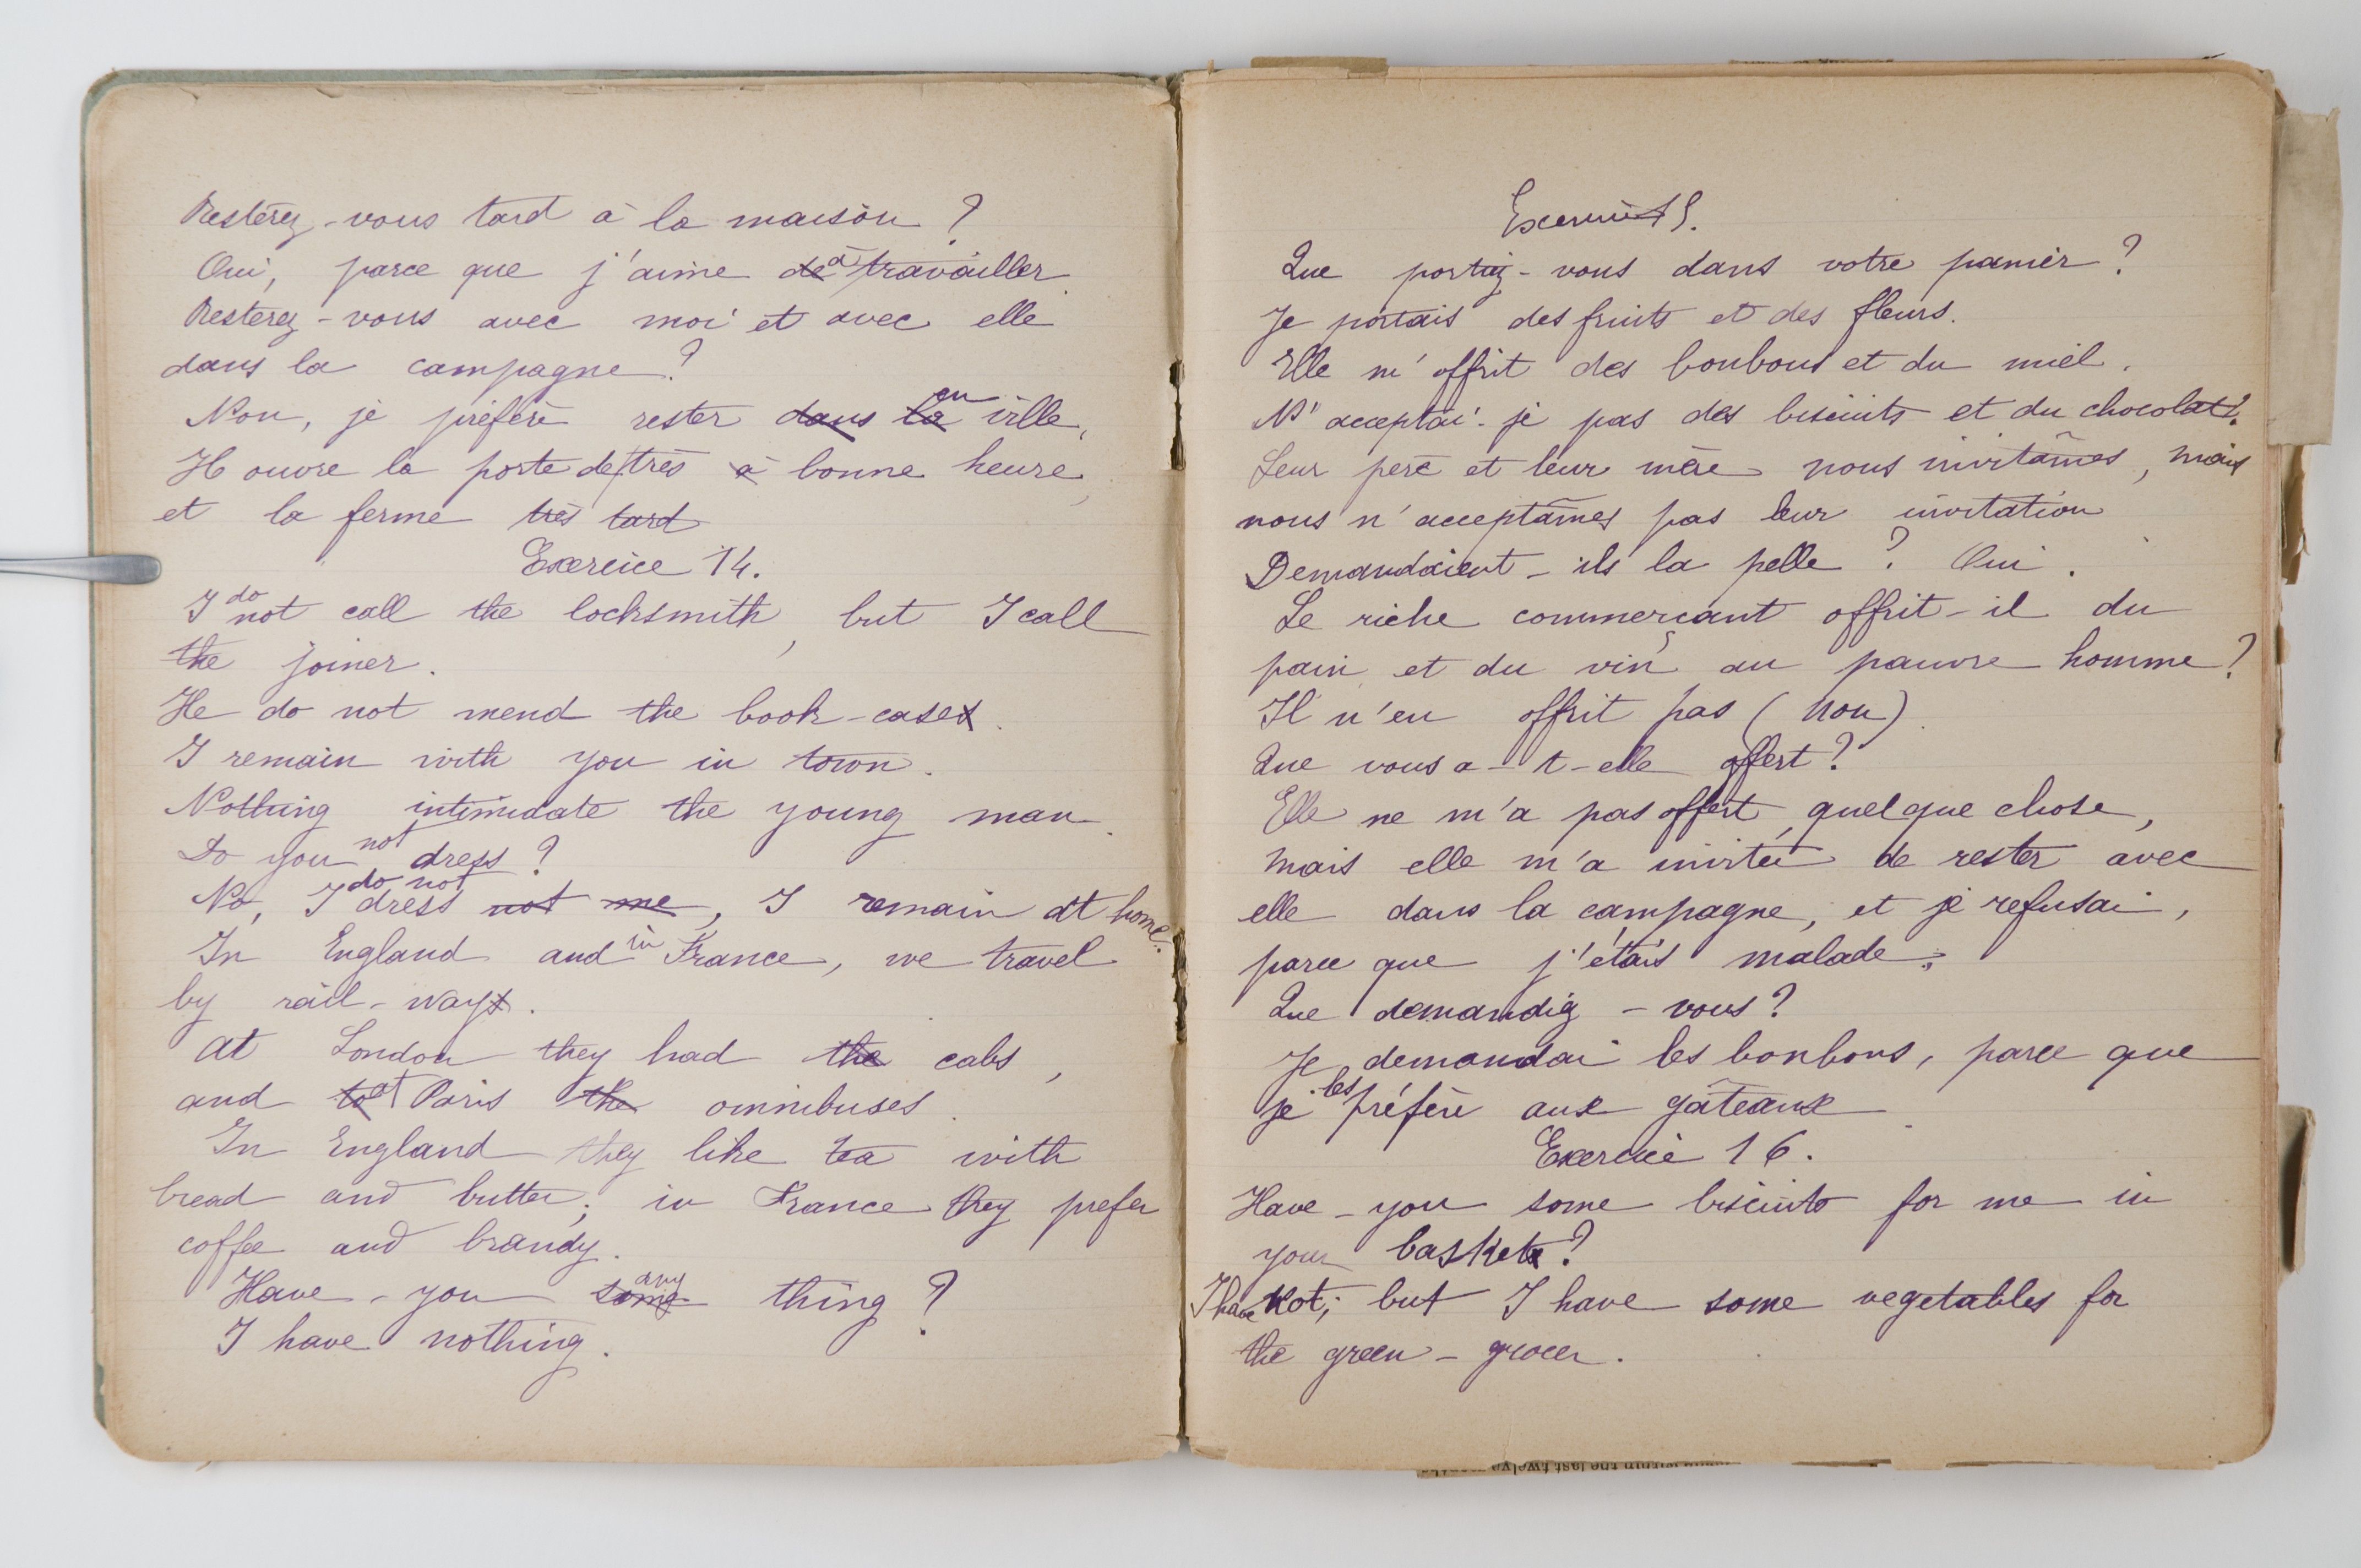 Resterez-vous tard à la maison ?
Oui, parce que j'aime de à travailler.
Resterez-vous avec moi et avec elle
dans la campagne ?
Non, je préfère rester dans la en ville,
Il ouvre la porte de très à bonne heure,
et la ferme très tard
Exercice 14.
I do not call the locksmith, but I call
the joiner.
He do not mend the book-cases.
I remain with you in town.
Nothing intimidate the young man.
Do you not dress ?
No, I do not dress not me, I remain at home.
In England and in France, we travel
by rail-ways.
At London they had the cabs,
and to at Paris the omnibuses.
In England they like tea with
bread and butter; in France they prefer
coffee and brandy.
Have-you some any thing ?
I have nothing.
Exercice 15.
Que portiez-vous dans votre panier ?
Je portais des fruits et des fleurs.
Elle m'offrit des bonbons et du miel.
N'acceptai-je pas des biscuits et du chocolat ?
Leur père et leur mère nous invitâmes, mais
nous n'acceptâmes pas leur invitation
Demandaient-ils la pelle ? Oui.
Le riche commerçant offrit-il du
pain et du vin au pauvre homme ?
Il n'en offrit pas (non).
Que vous a-t-elle offert ?
Elle ne m'a pas offert quelque chose,
mais elle m'a invitée de rester avec
elle dans la campagne, et je refusai,
parce que j'étais malade.
Que demandiez-vous ?
Je demandai les bonbons, parce que
je les préfère aux gâteaux.
Exercice 16.
Have-you some biscuits for me in
your basket ?
I have not; but I have some vegetables for
the green-grocer.